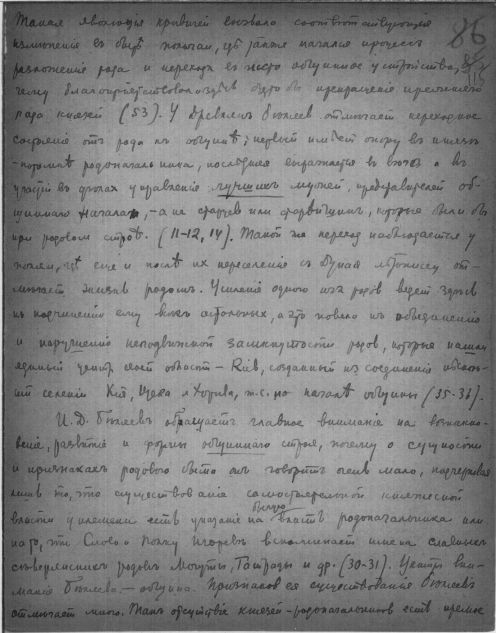 Такая эволюція кривичей вызвала соответствующія
измѣненія въ бытѣ полочан, гдѣ также начался процессъ
разложенія рода и перехода въ чисто общинное устройство,
чему благопріятствовало здѣсь прекращеніе прежняго
рода князей (53). У Древлянъ Бѣляевъ отмѣчаетъ переходное
состояніе отъ рода къ общинѣ; первый имѣетъ опору въ князѣ
-потомкѣ родоначальника, последняя выражается въ вѣчѣ и въ
участіи въ дѣлахъ управленія лучшихъ мужей, представителей об-
щиннаго начала, - а не старцевъ или старѣйшинъ, которые были бы
при родовомъ строѣ. (11-12, 14). Такой же переходъ наблюдается у
полянъ, гдѣ еще и послѣ их переселенія съ Дуная лѣтописец от-
мѣчает жизнь родомъ. Усиленіе одного изъ родовъ ведет здѣсь
къ подчиненію ему всѣхъ остальных, а это повело къ объединенію
и нарушенію неподвижной замкнутости родов, которые нашли
единый центр своей области - Кіев, созданный из соединенія
селеній Кія, Щека и Хорива, т.е. по началѣ общины (35-36).
И. Д. Бѣляевъ обращаетъ главное вниманіе на возникно-
веніе, развитіе и формы общиннаго строя, почему о сущности
и признаках родового быта онъ говоритъ очень мало, подчеркивая
лишь то, что существованіе самостоятельной княжеской
власти у племени есть указаніе на былую власть родоначальника или
на то, что Слово о Полку Игоревѣ вспоминаетъ имена славных
сѣверянских родовъ Могуты, Татраны и др. (30-31). Центръ вни-
манія Бѣляева - община. Признаков ея существованія Бѣляевъ
отмѣчает много. Такъ отсутствіе князей-родоначальников есть прямое
86